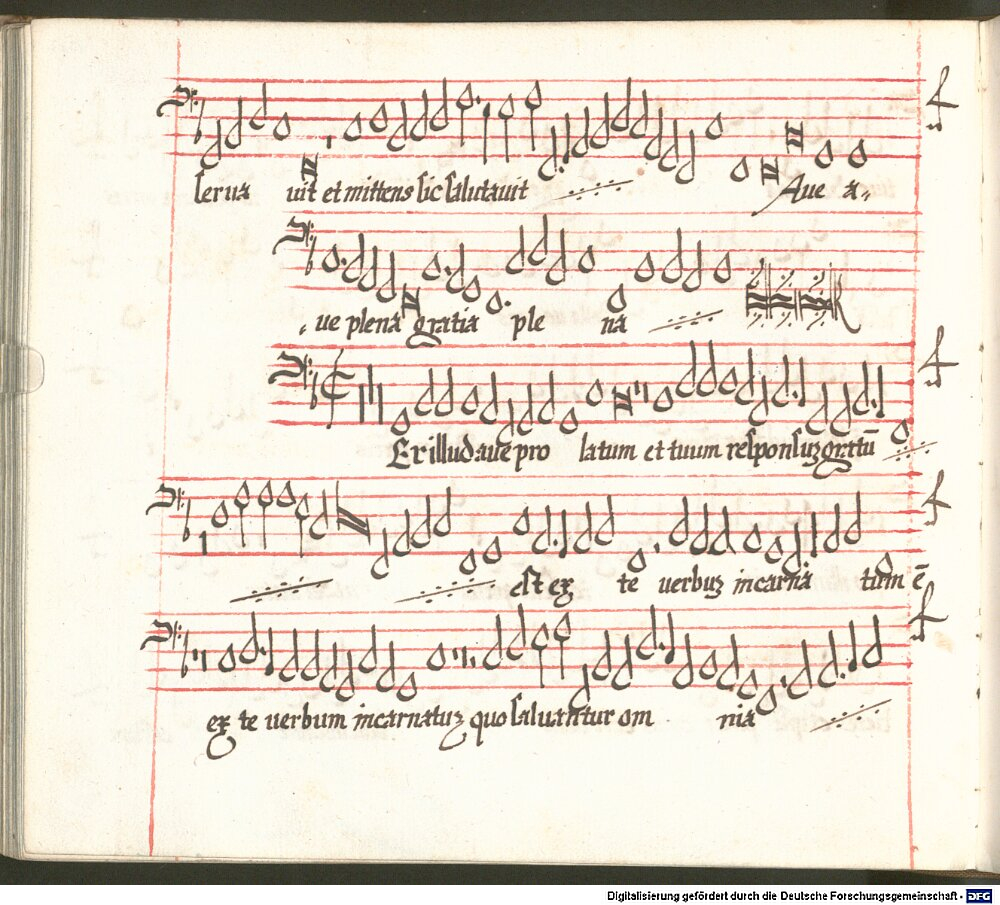 serua uit et mittens sic salutauit Aue a
ue plena gratia ple na
Ex illud aue pro latum et tuum responsuz gratū
est ex te uerbuz incarna tum ē
ex te uerbum incarnatuz quo saluantur om nia
Digitalisierung gefördert durch die Deutsche Forschungsgemeinschaft - DFG